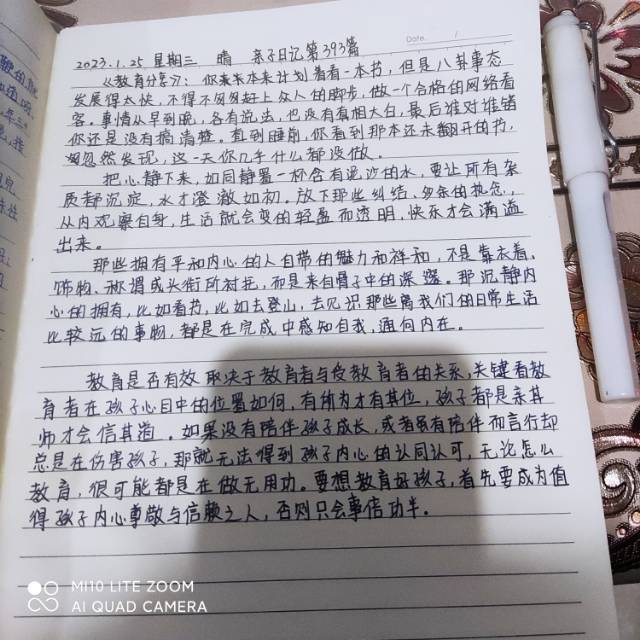 Date.
2023.1.25 星期三 晴 亲子日记第393篇
《教育分享》：你本来计划看看一本书，但是八卦事态
发展得太快，不得不匆匆赶上众人的脚步，做一个合格的网络看
客。事情从早到晚，各有说法，也没有真相大白，最后谁对谁错
你还是没有搞清楚。直到睡前，你看到那本还未翻开的书，
忽然发现，这一天你几乎什么都没做。
把心静下来，如同静置一杯含有泥沙的水，要让所有杂
质都沉淀，水才澄澈如初。放下那些纠结、多余的执念，
从内观察自身，生活就会变的轻盈而透明，快乐才会满溢
出来。
那些拥有平和内心的人自带的魅力和祥和，不是靠衣着、
饰物、称谓或头衔所衬托，而是来自骨子中的深邃。那沉静内
心的拥有，比如看书，比如去登山，去见识那些离我们的日常生活
比较远的事物，都是在完成中感知自我，通向内在。
教育是否有效取决于教育者与受教育者的关系，关键看教
育者在孩子心目中的位置如何，有所为才有其位，孩子都是亲其
师才会信其道。如果没有陪伴孩子成长，或者虽有陪伴而言行却
总是在伤害孩子，那就无法得到孩子内心的认同认可，无论怎么
教育，很可能都是在做无用功。要想教育好孩子，首先要成为值
得孩子内心尊敬与信赖之人，否则只会事倍功半。
MI 10 LITE ZOOM
AI QUAD CAMERA